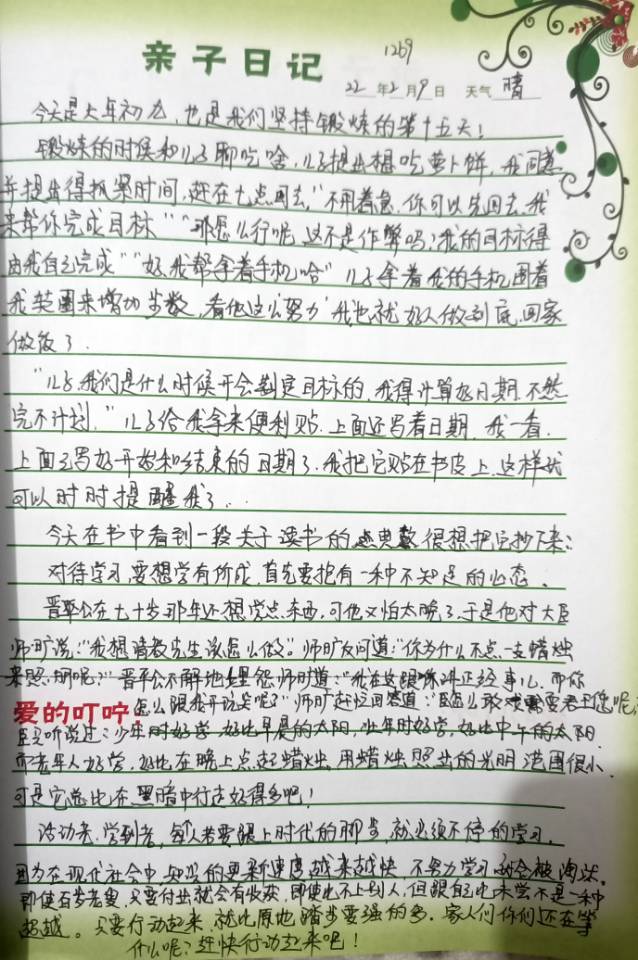 1269
亲子日记
22年2月9日 天气 晴
今天是大年初九,也是我们坚持锻炼的第十五天!
锻炼的时候和儿子聊吃啥,儿子提出想吃萝卜饼,我同意
并提出得抓紧时间,赶在七点回去,“不用着急,你可以先回去,我
来帮你完成目标”“那怎么行呢,这不是作弊吗?我的目标得
由我自己完成”“好,我帮拿着手机哈”儿子拿着我的手机围着
我转圈来增加步数,看他这么努力,我也就好人做到底,回家
做饭了.
“儿子,我们是什么时候开会制定目标的,我得计算好日期,不然
完不计划.”儿子给我拿来便利贴,上面还写着日期,我一看,
上面已写好开始和结束的日期了,我把它贴在书皮上,这样我
可以时时提醒我了..
今天在书中看到一段关于读书的典数很想把它抄下来:
对待学习,要想学有所成,首先要抱有一种不知足的心态.
晋平公在七十岁那年还想学点东西,可他又怕太晚了,于是他对大臣
师旷说:“我想请教先生该怎么做”.师旷反问道:“你为什么不点一支蜡烛
来照明呢?”晋平公不解地埋怨师旷道:“我在这跟你讲正经事儿,而你
怎么跟我开玩笑呢?”师旷赶忙回答道:“臣怎么敢戏君王您呢,
爱的叮咛:
臣只听说过:少年时好学,好比早晨的太阳,壮年时好学,好比中午的太阳,
而老年人好学,好比在晚上点起蜡烛,用蜡烛照出的光明范围很小,
可是它总比在黑暗中行走好得多吧!
活动来,学到老,每个人若要跟上时代的脚步,就必须不停的学习.
因为在现代社会中,知识的更新速度越来越快,不努力学习就会被淘汰.
即使百岁老叟,只要付出就会有收获,即使比不上别人,但跟自己比未尝不是一种
超越。只要行动起来,就比原地踏步要强的多.家人们你们还在等
什么呢?赶快行动起来吧!